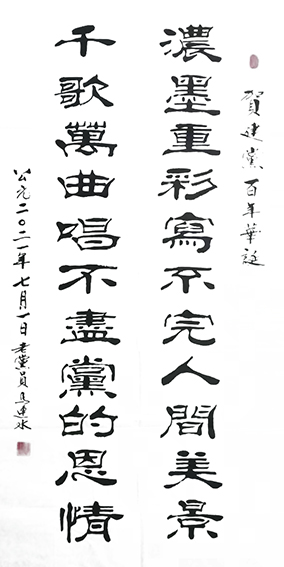 賀建黨百年華誕
濃墨重彩寫不完人間美景
千歌萬曲唱不盡黨的恩情
公元二〇二一年七月一日老黨員馬連水